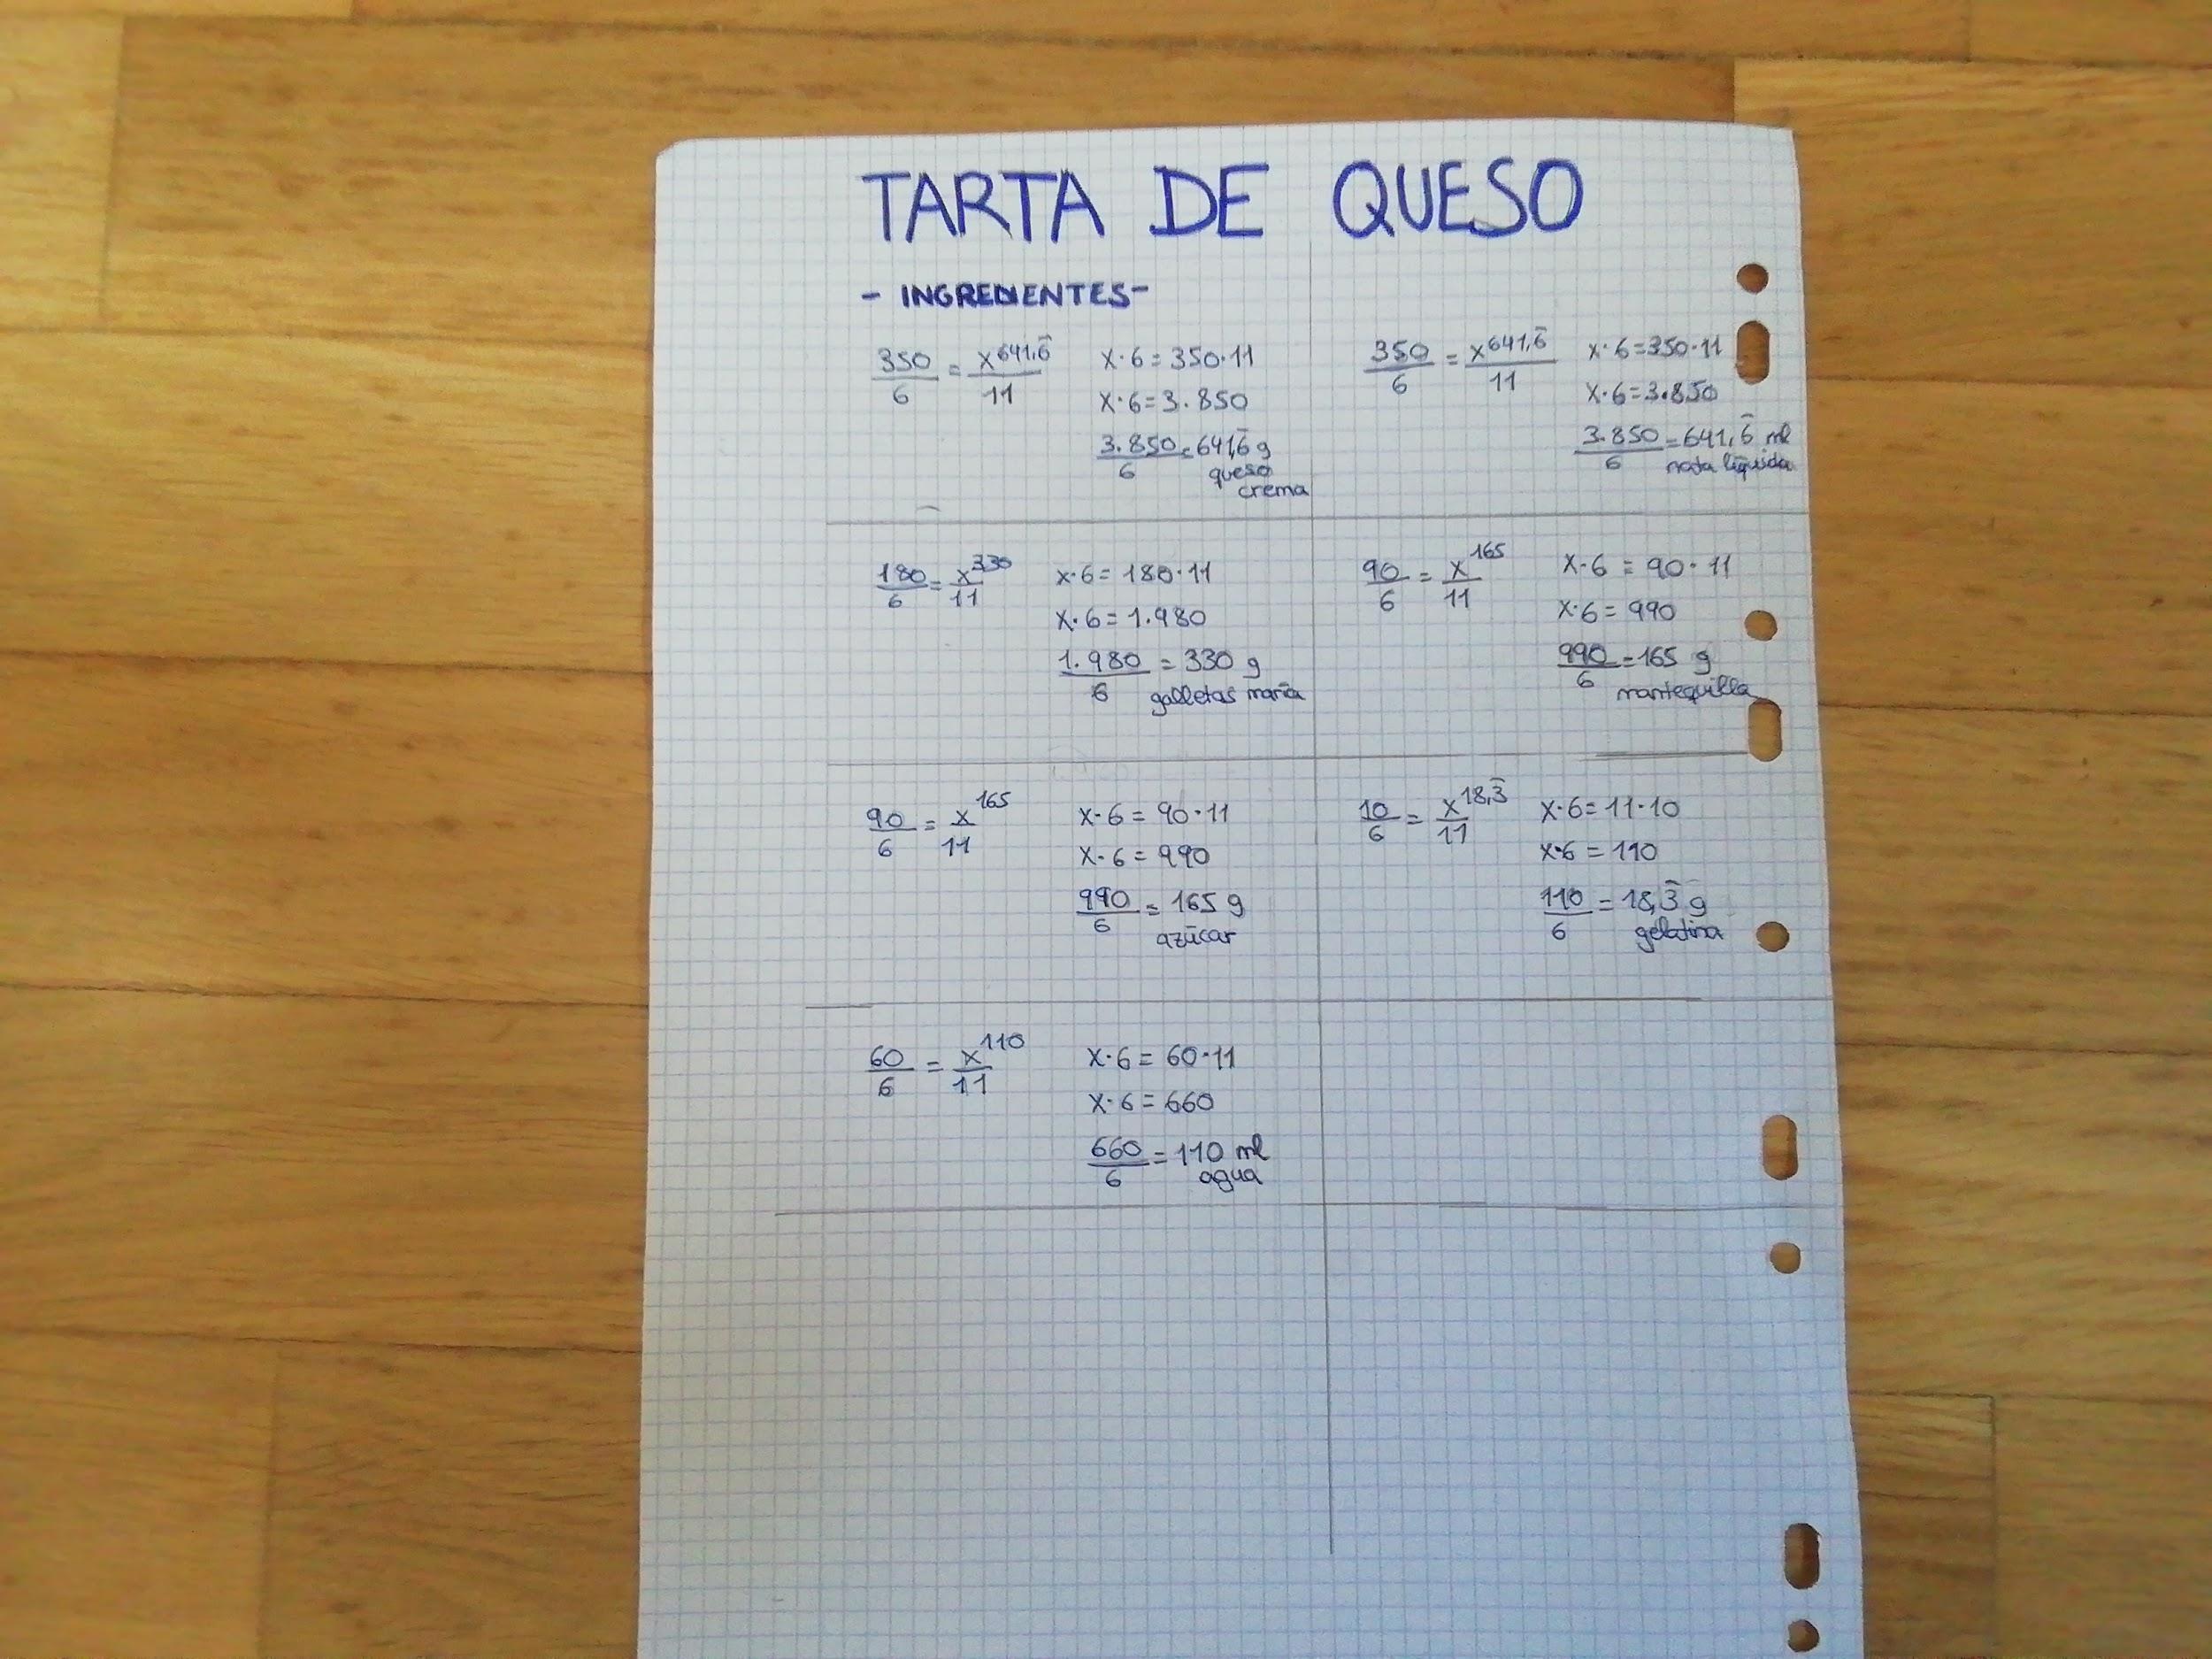 TARTA DE QUESO
- INGREDIENTES-
350/6 = x^641,6̄/11
x·6=350·11
x·6=3.850
3.850/6=641,6̄ g
queso
crema
350/6 = x^641,6̄/11
x·6=350·11
x·6=3.850
3.850/6=641,6̄ ml
nata líquida
180/6=x^330/11
x·6=180·11
x·6=1.980
1.980/6 = 330 g
galletas maría
90/6 = x^165/11
x·6 = 90·11
x·6= 990
990/6=165 g
mantequilla
90/6 = x^165/11
x·6 = 90·11
x·6 = 990
990/6 = 165 g
azúcar
10/6 = x^18,3̄/11
x·6=11·10
x·6 = 110
110/6 = 18,3̄ g
gelatina
60/6 = x^110/11
x·6 = 60·11
x·6 = 660
660/6 = 110 ml
agua